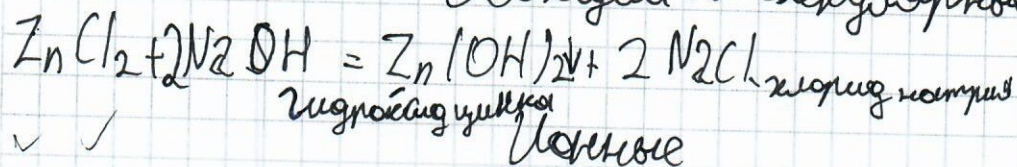 ZnCl2+2NaOH = Zn(OH)2↓+ 2NaCl хлорид натрия
гидроксид цинка
Ионные